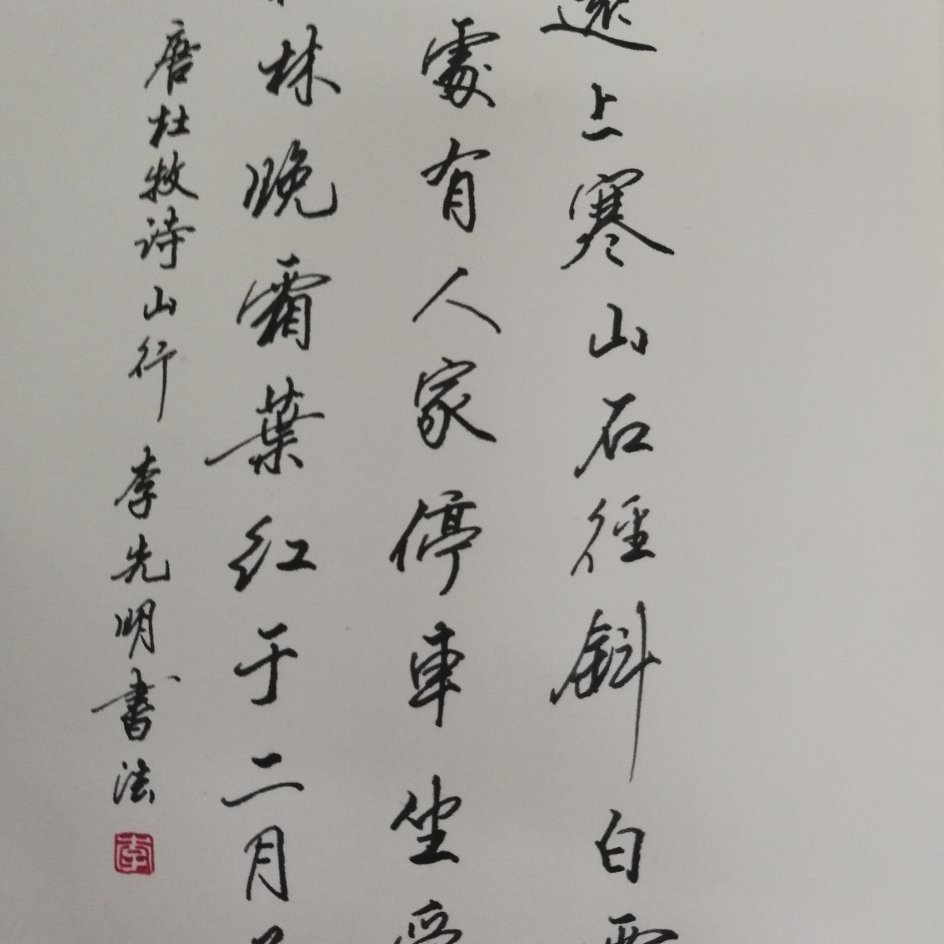 遠上寒山石径斜白雲
處有人家停車坐愛
林晚霜葉红于二月
唐杜牧诗山行 李先明書法
李